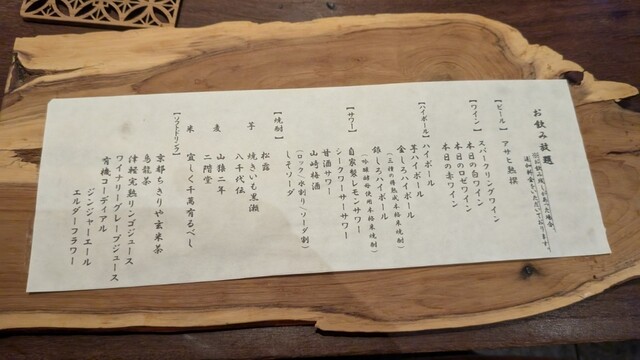 お飲み放題
【ビール】 アサヒ熟撰
【ワイン】 スパークリングワイン
本日の白ワイン
本日のロゼワイン
本日の赤ワイン
【ハイボール】 ハイボール
芋ハイボール
金しろハイボール
銀しろハイボール
【サワー】 自家製レモンサワー
シークワーサーサワー
甘酒サワー
山崎梅酒
しそソーダ
【焼酎】 (ロック/水割り/ソーダ割)
芋 松露
焼きいも黒瀬
八千代伝
麦 山猿二年
二階堂
米 宜しく千萬有るべし
【ソフトドリンク】 京都ちきりや玄米茶
烏龍茶
津軽完熟リンゴジュース
ワイナリーグレープジュース
有機コーディアル
ジンジャーエール
エルダーフラワー